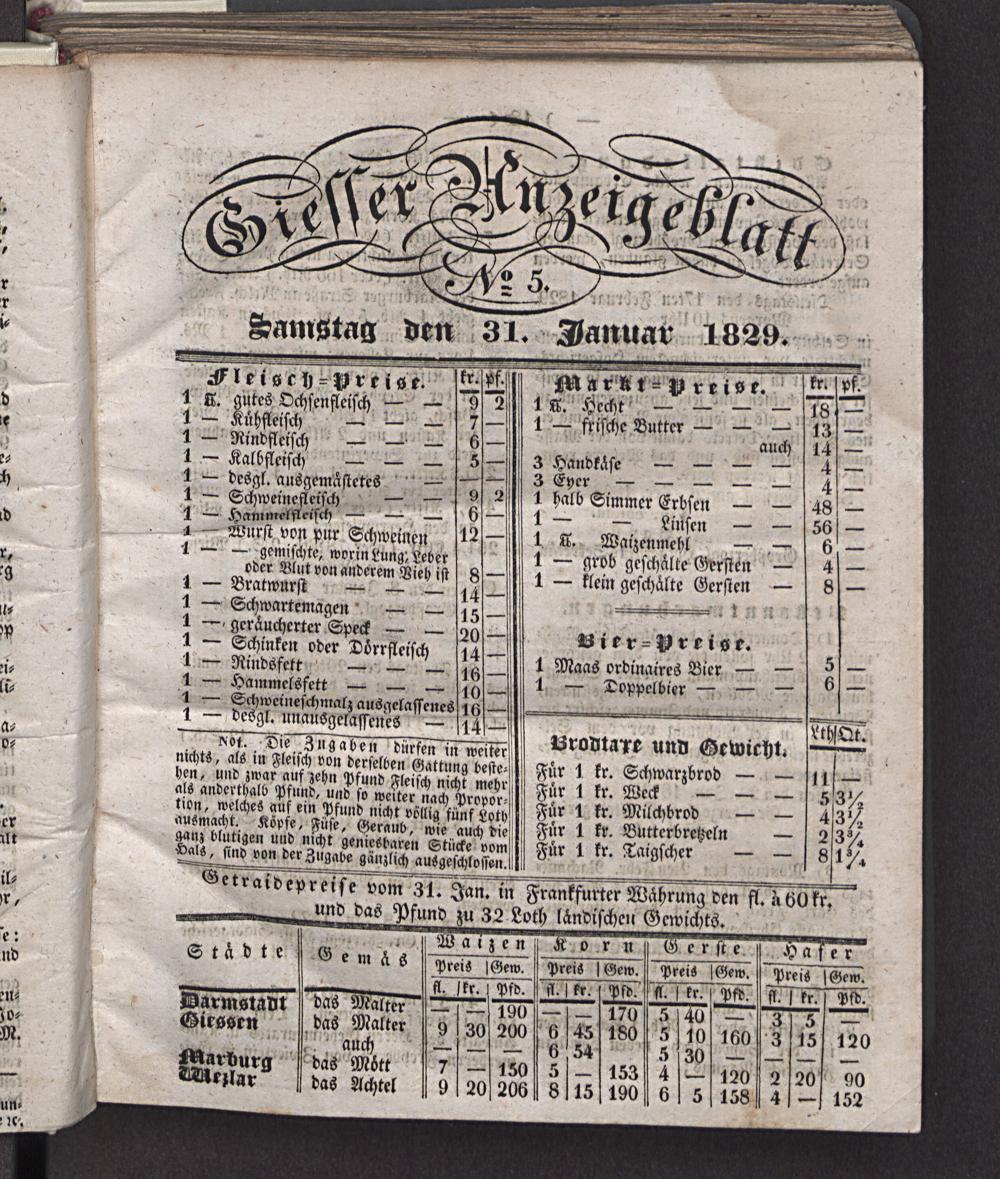 Giesser Anzeigeblatt
No 5.
Samstag den 31. Januar 1829.
Fleisch=Preise. kr. pf.
1 ℔. gutes Ochsenfleisch — — 9 2
1 — Kühfleisch — — — 7 —
1 — Rindfleisch — — — 6 —
1 — Kalbfleisch — — — 5 —
1 — desgl. ausgemästetes — —
1 — Schweinefleisch — — 9 2
1 — Hammelfleisch — — — 6 —
1 — Wurst von pur Schweinen 12 —
1 — — gemischte, worin Lung, Leber
oder Blut von anderem Vieh ist 8 —
1 — Bratwurst — — — 14 —
1 — Schwartemagen — — 15 —
1 — geräucherter Speck — — 20 —
1 — Schinken oder Dörrfleisch 14 —
1 — Rindsfett — — — 16 —
1 — Hammelsfett — — — 10 —
1 — Schweineschmalz ausgelassenes 16 —
1 — desgl. unausgelassenes — 14 —
Not. Die Zugaben dürfen in weiter
nichts, als in Fleisch von derselben Gattung beste-
hen, und zwar auf zehn Pfund Fleisch nicht mehr
als anderthalb Pfund, und so weiter nach Propor-
tion, welches auf ein Pfund nicht völlig fünf Loth
ausmacht. Köpfe, Füse, Geraub, wie auch die
ganz blutigen und nicht geniesbaren Stücke vom
Hals, sind von der Zugabe gänzlich ausgeschlossen.
Markt=Preise. kr. pf.
1 ℔. Hecht — — — — 18 —
1 — frische Butter — — — 13 —
auch 14 —
3 Handkäse — — — — 4 —
3 Eyer — — — — 4 —
1 halb Simmer Erbsen — — 48 —
1 — — Linsen — — 56 —
1 ℔. Waizenmehl — — 6 —
1 — grob geschälte Gersten — 4 —
1 — klein geschälte Gersten — 8 —
Bier=Preise.
1 Maas ordinaires Bier — — 5 —
1 — Doppelbier — — — 6 —
Brodtaxe und Gewicht. Lth Qt.
Für 1 kr. Schwarzbrod — — 11 —
Für 1 kr. Weck — — 5 3½
Für 1 kr. Milchbrod — — 4 3½
Für 1 kr. Butterbretzeln — 2 3¾
Für 1 kr. Taigscher — — 8 1¾
Getraidepreise vom 31. Jan. in Frankfurter Währung den fl. à 60 kr.
und das Pfund zu 32 Loth ländischen Gewichts.
Städte Gemäs Waizen Korn Gerste Hafer
Preis Gew. Preis Gew. Preis Gew. Preis Gew.
fl. kr. Pfd. fl. kr. Pfd. fl. kr. Pfd. fl. kr. Pfd.
Darmstadt das Malter — — 190 — — 170 5 40 — 3 5 —
Giessen das Malter 9 30 200 6 45 180 5 10 160 3 15 120
auch — — — 6 54 5 30 — — — —
Marburg das Mött 7 — 150 5 — 153 4 — 120 2 20 90
Wezlar das Achtel 9 20 206 8 15 190 6 5 158 4 — 152